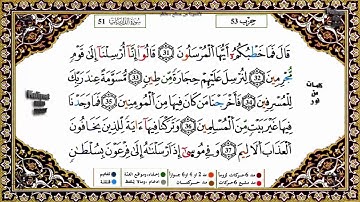 حزب 53
سورة الذاريات 51
قَالَ فَمَا خَطْبُكُمُۥٓ أَيُّهَا ٱلْمُرْسَلُونَ 31 قَالُوٓاْ إِنَّآ أُرْسِلْنَآ إِلَىٰ قَوْمٖ
مُّجْرِمِينَ 32 لِنُرْسِلَ عَلَيْهِمْ حِجَارَةٗ مِّن طِينٖ 33 مُّسَوَّمَةً عِندَ رَبِّكَ
لِلْمُسْرِفِينَ 34 فَأَخْرَجْنَا مَن كَانَ فِيهَا مِنَ ٱلْمُومِنِينَ 35 فَمَا وَجَدْنَا
فِيهَا غَيْرَ بَيْتٖ مِّنَ ٱلْمُسْلِمِينَ 36 وَتَرَكْنَا فِيهَآ ءَايَةٗ لِّلَّذِينَ يَخَافُونَ
ٱلْعَذَابَ ٱلْأَلِيمَ 37 وَفِي مُوسَىٰٓ إِذْ أَرْسَلْنَٰهُ إِلَىٰ فِرْعَوْنَ بِسُلْطَٰنٖ